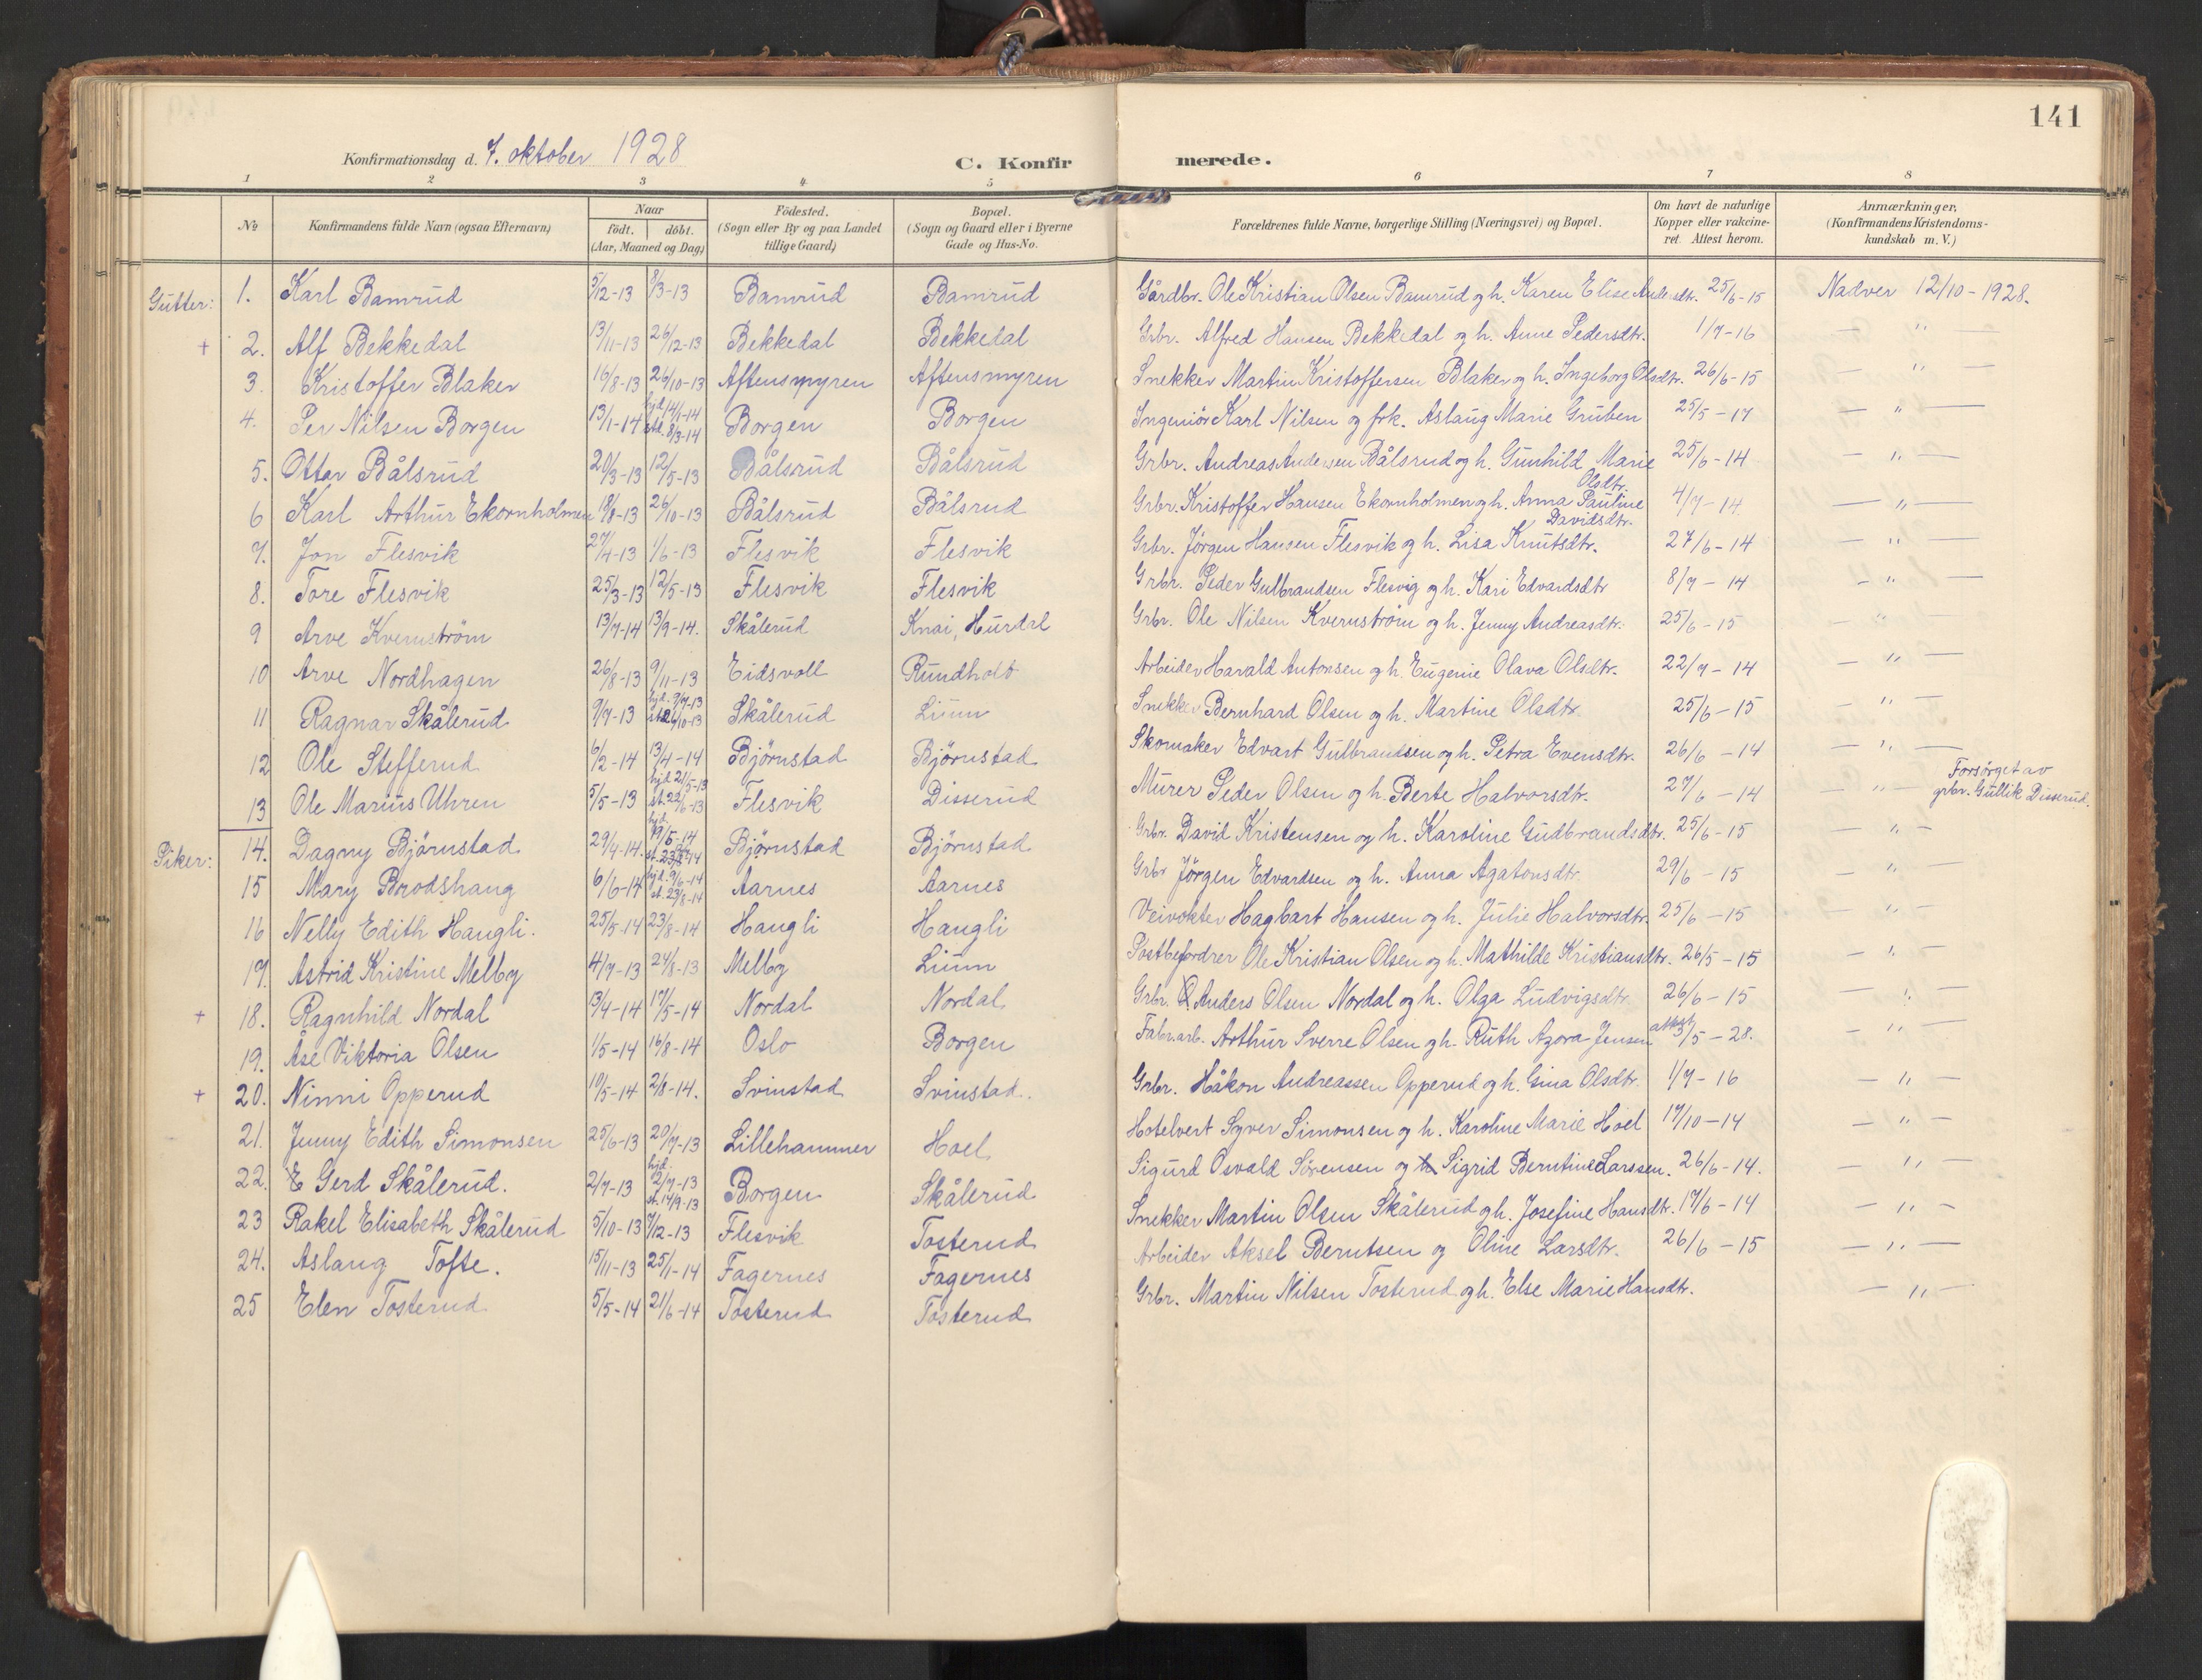 141
Konfirmationsdag d. 7. oktober 1928 C. Konfirmerede.
1 2 3 4 5 6 7 8
No Konfirmandens fulde Navn (ogsaa Efternavn) Naar födt. döbt. (Aar, Maaned og Dag) Födested. (Sogn eller By og paa Landet tillige Gaard) Bopæl. (Sogn og Gaard eller i Byerne Gade og Hus-No. Forældrenes fulde Navne, borgerlige Stilling (Næringsvei) og Bopæl. Om havt de naturlige Kopper eller vakcineret. Attest herom. Anmærkninger, (Konfirmandens Kristendomskundskab m. V.)
Gutter: 1. Karl Bamrud 5/12-13 8/3-13 Bamrud Bamrud Gårdbr. Ole Kristian Olsen Bamrud og h. Karen Elise Andersdtr. 25/6-15 Nadver 12/10-1928.
+ 2. Alf Bekkedal 13/11-13 26/12-13 Bekkedal Bekkedal Grbr. Alfred Hansen Bekkedal og h. Anne Pedersdtr. 1/7-16 — " —
3. Kristoffer Blaker 16/8-13 26/10-13 Aftensmyren Aftensmyren Snekker Martin Kristoffersen Blaker og h. Ingeborg Olsdtr. 26/6-15 — " —
4. Per Nilsen Borgen 13/1-14 hjd. 14/1-14 st. 8/3-14 Borgen Borgen Ingeniör Karl Nilsen og frk. Aslaug Marie Gruben 25/5-17 — " —
5. Ottar Bålsrud 20/3-13 12/5-13 Bålsrud Bålsrud Grbr. Andreas Andersen Bålsrud og h. Gunhild Marie Olsdtr. 25/6-14 — " —
6 Karl Arthur Ekornholmen 18/8-13 26/10-13 Bålsrud Bålsrud Grbr. Kristoffer Hansen Ekornholmen og h. Anna Pauline Davidsdtr. 4/7-14 — " —
7. Jon Flesvik 27/4-13 1/6-13 Flesvik Flesvik Grbr. Jörgen Hansen Flesvik og h. Lisa Knutsdtr. 27/6-14 — " —
8. Tore Flesvik 25/3-13 12/5-13 Flesvik Flesvik Grbr. Peder Gulbrandsen Flesvig og h. Kari Edvardsdtr 8/7-14 — " —
9 Arve Kvernström 13/7-14 13/9-14. Skålerud Knai, Hurdal Grbr. Ole Nilsen Kvernström og h. Jenny Andreasdtr. 25/6-15 — " —
10 Arve Nordhagen 26/8-13 9/11-13 Eidsvoll Rundholt Arbeider Harald Antonsen og h. Eugenie Olava Olsdtr. 22/7-14 — " —
11 Ragnar Skålerud 9/7-13 hjd. 9/7-13 st. 26/10-13 Skålerud Lium Snekker Bernhard Olsen og h. Martine Olsdtr. 25/6-15 — " —
12 Ole Stefferud 6/2-14 13/4-14 Björnstad Björnstad Skomaker Edvart Gulbrandsen og h. Petra Evensdtr. 26/6-14 — " —
13 Ole Marius Uhren 5/5-13 hjd. 21/5-13 st. 22/6-13 Flesvik Disserud Murer Peder Olsen og h. Berte Halvorsdtr. 27/6-14 — " — Forsörget av grbr. Gullik Disserud.
Piker: 14. Dagny Björnstad 29/4-14. hjd. 19/5-14 st. 23/8-14 Björnstad Björnstad Grbr. David Kristensen og h. Karoline Gudbrandsdtr. 25/6-15 — " —
15 Mary Brodshaug 6/6-14 hjd. 9/6-14 st. 23/8-14 Aarnes Aarnes Grbr Jörgen Edvardsen og h. Anna Agatonsdtr. 29/6-15 — " —
16 Nelly Edith Haugli. 25/5-14 23/8-14 Haugli Haugli Veivokter Hagbart Hansen og h. Julie Halvorsdtr. 25/6-15 — " —
17. Astrid Kristine Melby 4/7-13 24/8-13 Melby Lium Postbefordrer Ole Kristian Olsen og h. Mathilde Kristiansdtr. 26/5-15 — " —
+ 18. Ragnhild Nordal 13/4-14 17/5-14 Nordal Nordal Grbr. Anders Olsen Nordal og h. Olga Ludvigsdtr. 26/6-15 — " —
19. Åse Viktoria Olsen 1/5-14 16/8-14 Oslo Borgen Fabr.arb. Arthur Sverre Olsen og h. Ruth Agora Jensen attest 3/5-28. — " —
+ 20. Ninni Opperud 10/5-14 2/8-14. Svinstad Svinstad. Grbr. Håkon Andreassen Opperud og h. Gina Olsdtr. 1/7-16 — " —
21. Jenny Edith Simonsen 25/6-13 20/7-13 Lillehammer Hoel Hotelvert Syver Simonsen og h. Karoline Marie Hoel 17/10-14 — " —
22. Gerd Skålerud. 2/7-13 hjd. 2/7-13 st. 14/9-13 Borgen Skålerud Sigurd Osvald Sörensen og Sigrid Berntine Larssen. 26/6-14. — " —
23 Rakel Elisabeth Skålerud 5/10-13 7/12-13 Flesvik Tosterud Snekker Martin Olsen Skålerud og h. Josefine Hansdtr. 17/6-14 — " —
24. Aslaug Tofte. 15/11-13 25/1-14 Fagernes Fagernes Arbeider Aksel Berntsen og Oline Larsdtr. 26/6-15 — " —
25 Elen Tosterud 5/5-14 21/6-14 Tosterud Tosterud Grbr. Martin Nilsen Tosterud og h. Else Marie Hansdtr. — " —